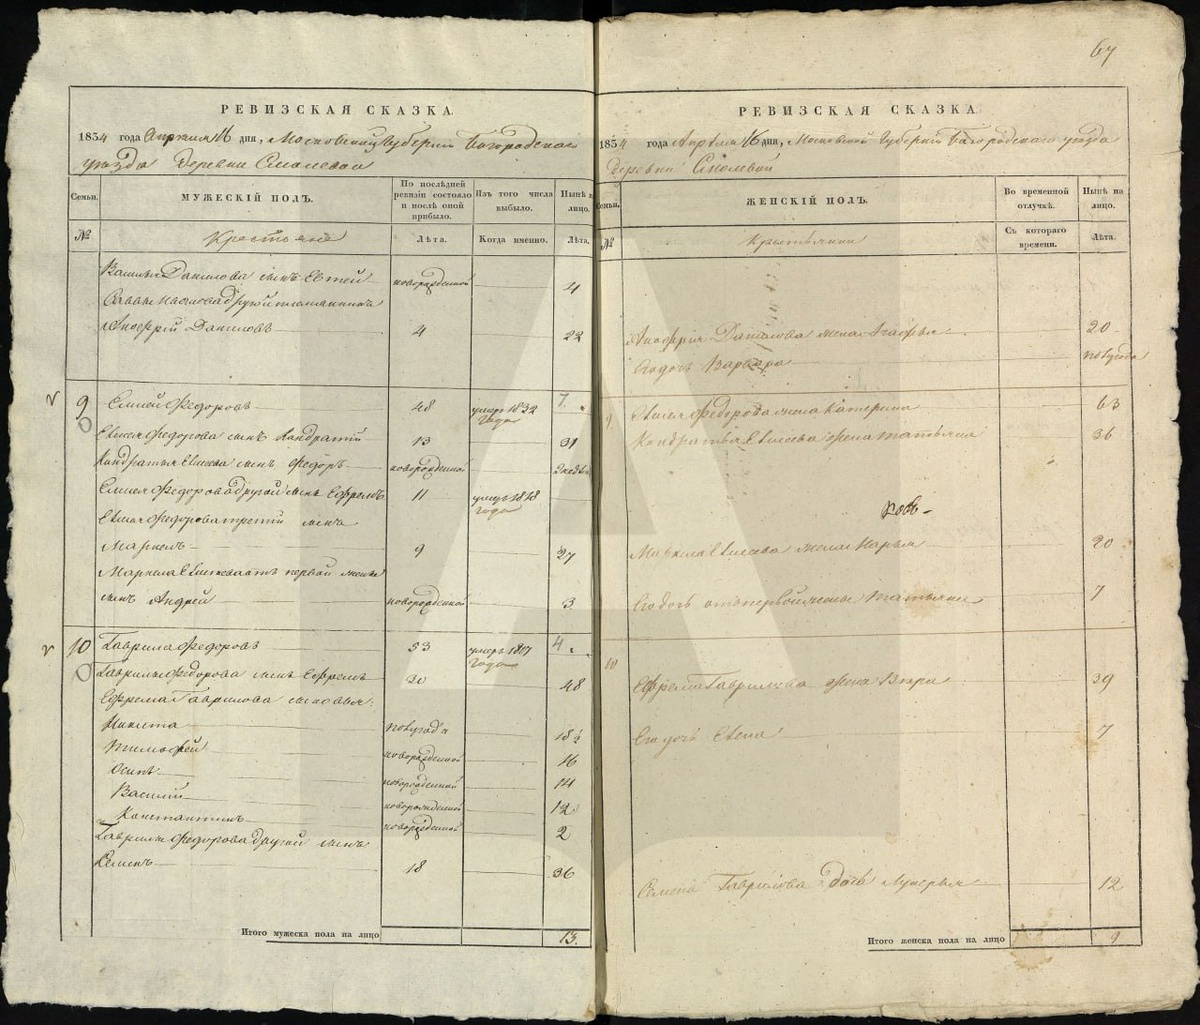 67
РЕВИЗСКАЯ СКАЗКА.
1834 года Апреля 16 дня, Московской Губернии Богородского
уезда Деревни Смолевой
Семьи.
МУЖЕСКІЙ ПОЛЪ.
По последней ревизіи состояло и после оной прибыло.
Изъ того числа выбыло.
Ныне на лицо.
№
Крестьяне
Лета.
Когда именно.
Лета.
Данилова сынъ Евтей новорожденной 4
другой
Данилов 4 22
9 Елисей Федоровъ 48 умеръ 1832 года
7
Елисея Федорова сынъ Кондратий 13 31
Кондратья Елисеева сынъ Федоръ новорожденной
Елисея Федорова другой сынъ Ефремъ 11 умеръ 1818 года
Елисея Федорова третий сынъ
Маркелъ 9 27
Маркела Елисеева отъ первой жены
сынъ Андрей новорожденной 3
10 Гаврила Федоровъ 53 умеръ 1817 года
4
Гаврилы Федорова сынъ Ефремъ 30 48
Ефрема Гаврилова сыновья:
Никита полугода 18 ½
Тимофей новорожденной 16
Осипъ новорожденной 14
Василий новорожденной 12
Константинъ новорожденной 2
Гаврилы Федорова другой сынъ
Семенъ 18 36
Итого мужеска пола на лицо
13.
РЕВИЗСКАЯ СКАЗКА.
1834 года Апреля 16 дня, Московской Губернии Богородского уезда
Деревни Смолевой
Семьи.
ЖЕНСКІЙ ПОЛЪ.
Во временной отлучке.
Ныне на лицо.
№
Крестьянки
Съ котораго времени.
Лета.
Данилова жена Агафья 20
Его дочь Варвара полугода
9 Елисея Федорова жена Катерина 63
Кондратья Елисеева жена Татьяна 36
Маркела Елисеева жена Марья 20
Его дочь отъ первой жены Татьяна 7
10
Ефрема Гаврилова жена Вера 39
Его дочь Елена 7
Семена Гаврилова дочь Лукерья 12
Итого женска пола на лицо
9